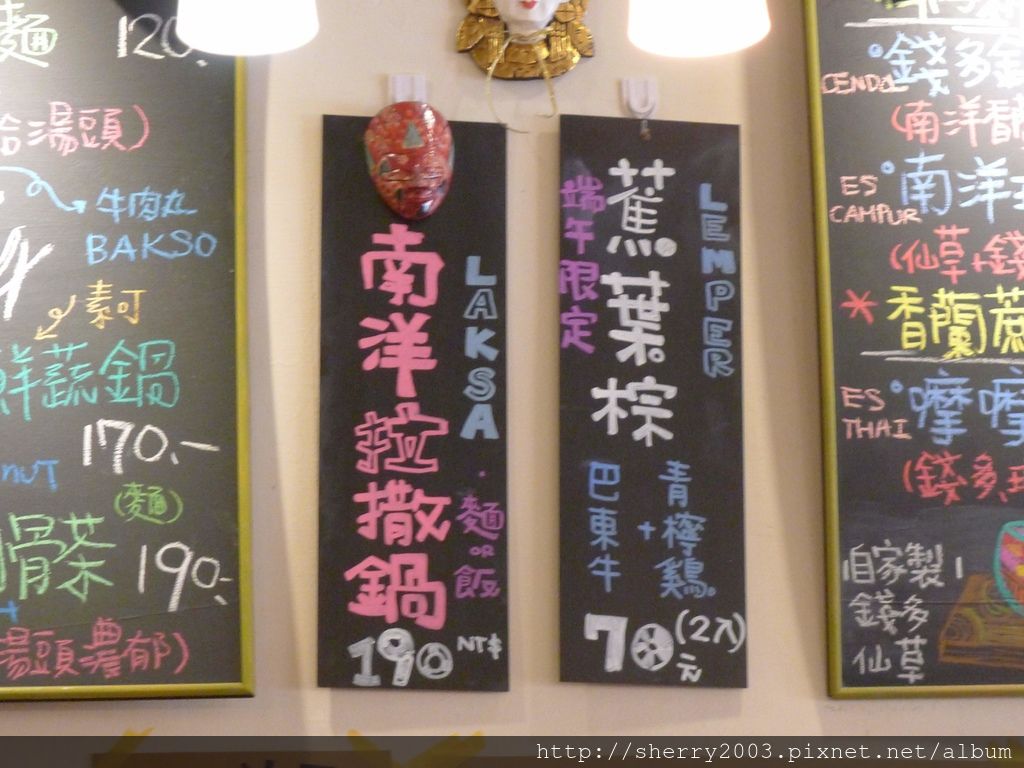 麵 120.
湯頭)
牛肉丸
BAKSO
素可
鮮蔬鍋
170.-
(麵)
骨茶
190.-
湯頭濃郁)
南洋拉撒鍋
LAKSA
麵 or 飯
190 NT$
LEMPER
蕉葉粽
端午限定
青檸雞
+
巴東牛
70元(2入)
錢多
CENDOL
(南洋香
ES CAMPUR
南洋
(仙草+錢
*香蘭蔗
ES THAI
嚤嚤
(錢多
自家製
錢多
仙草
http://sherry2003.pixnet.net/album